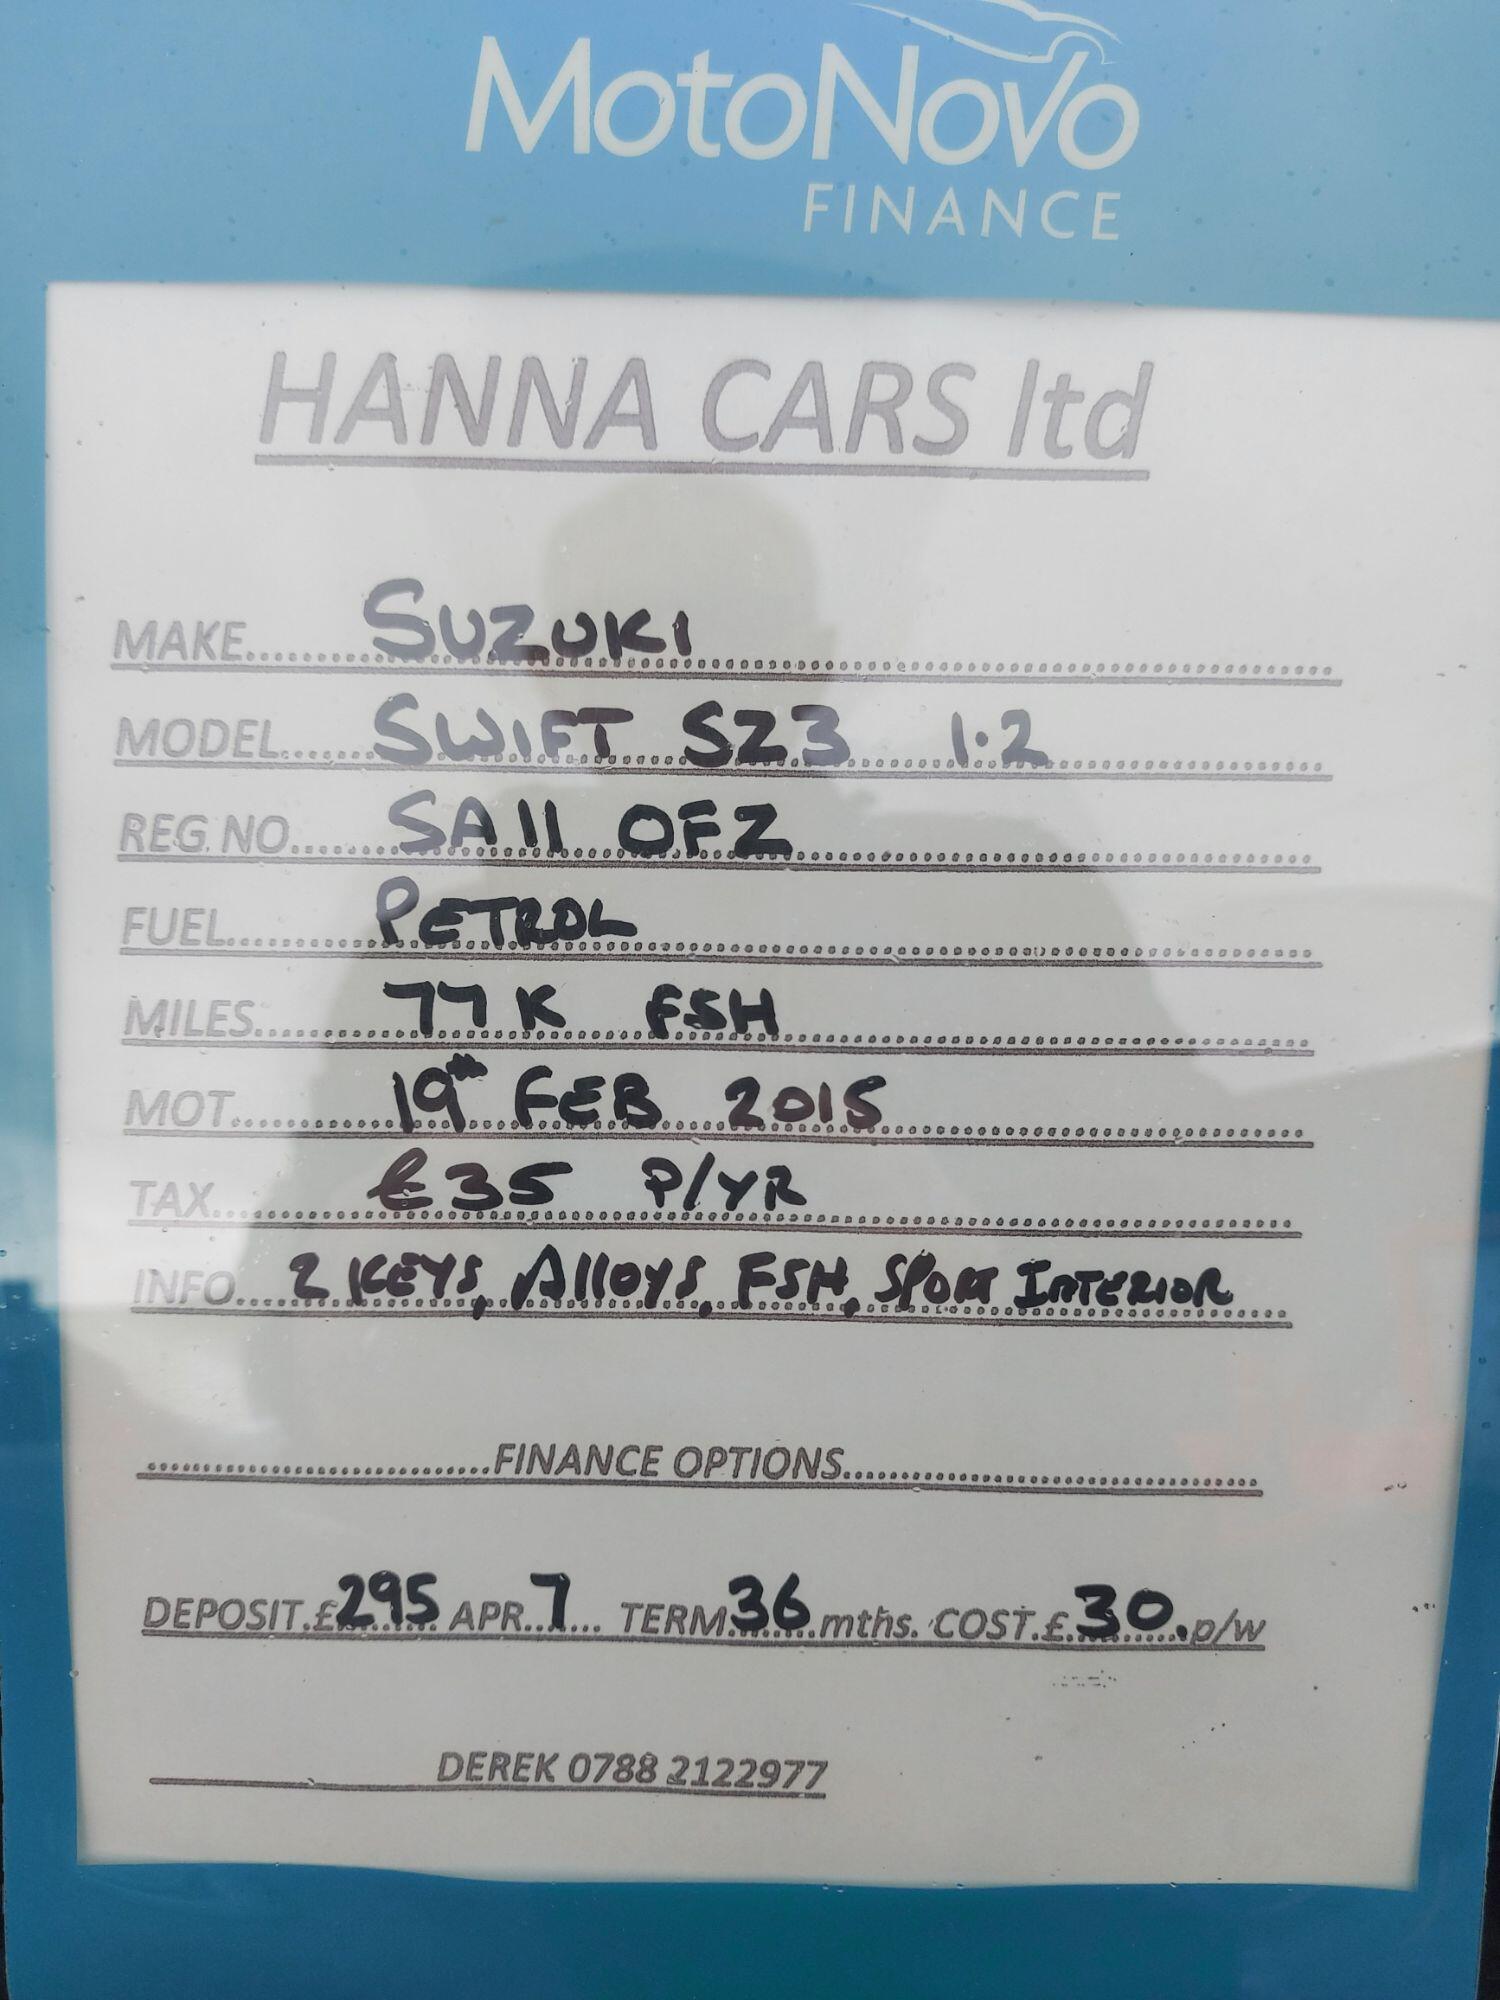 MotoNovo
FINANCE
HANNA CARS ltd
MAKE.......SUZUKI
MODEL......SWIFT SZ3 1.2
REG NO......SA11 OFZ
FUEL......PETROL
MILES......77K FSH
MOT......19th FEB 2015
TAX......£35 P/YR
INFO....2 KEYS, Alloys, FSH, SPORT INTERIOR
..............................FINANCE OPTIONS..............................
DEPOSIT.£295 APR..7... TERM.36.mths. COST.£.30.p/w
DEREK 0788 2122977